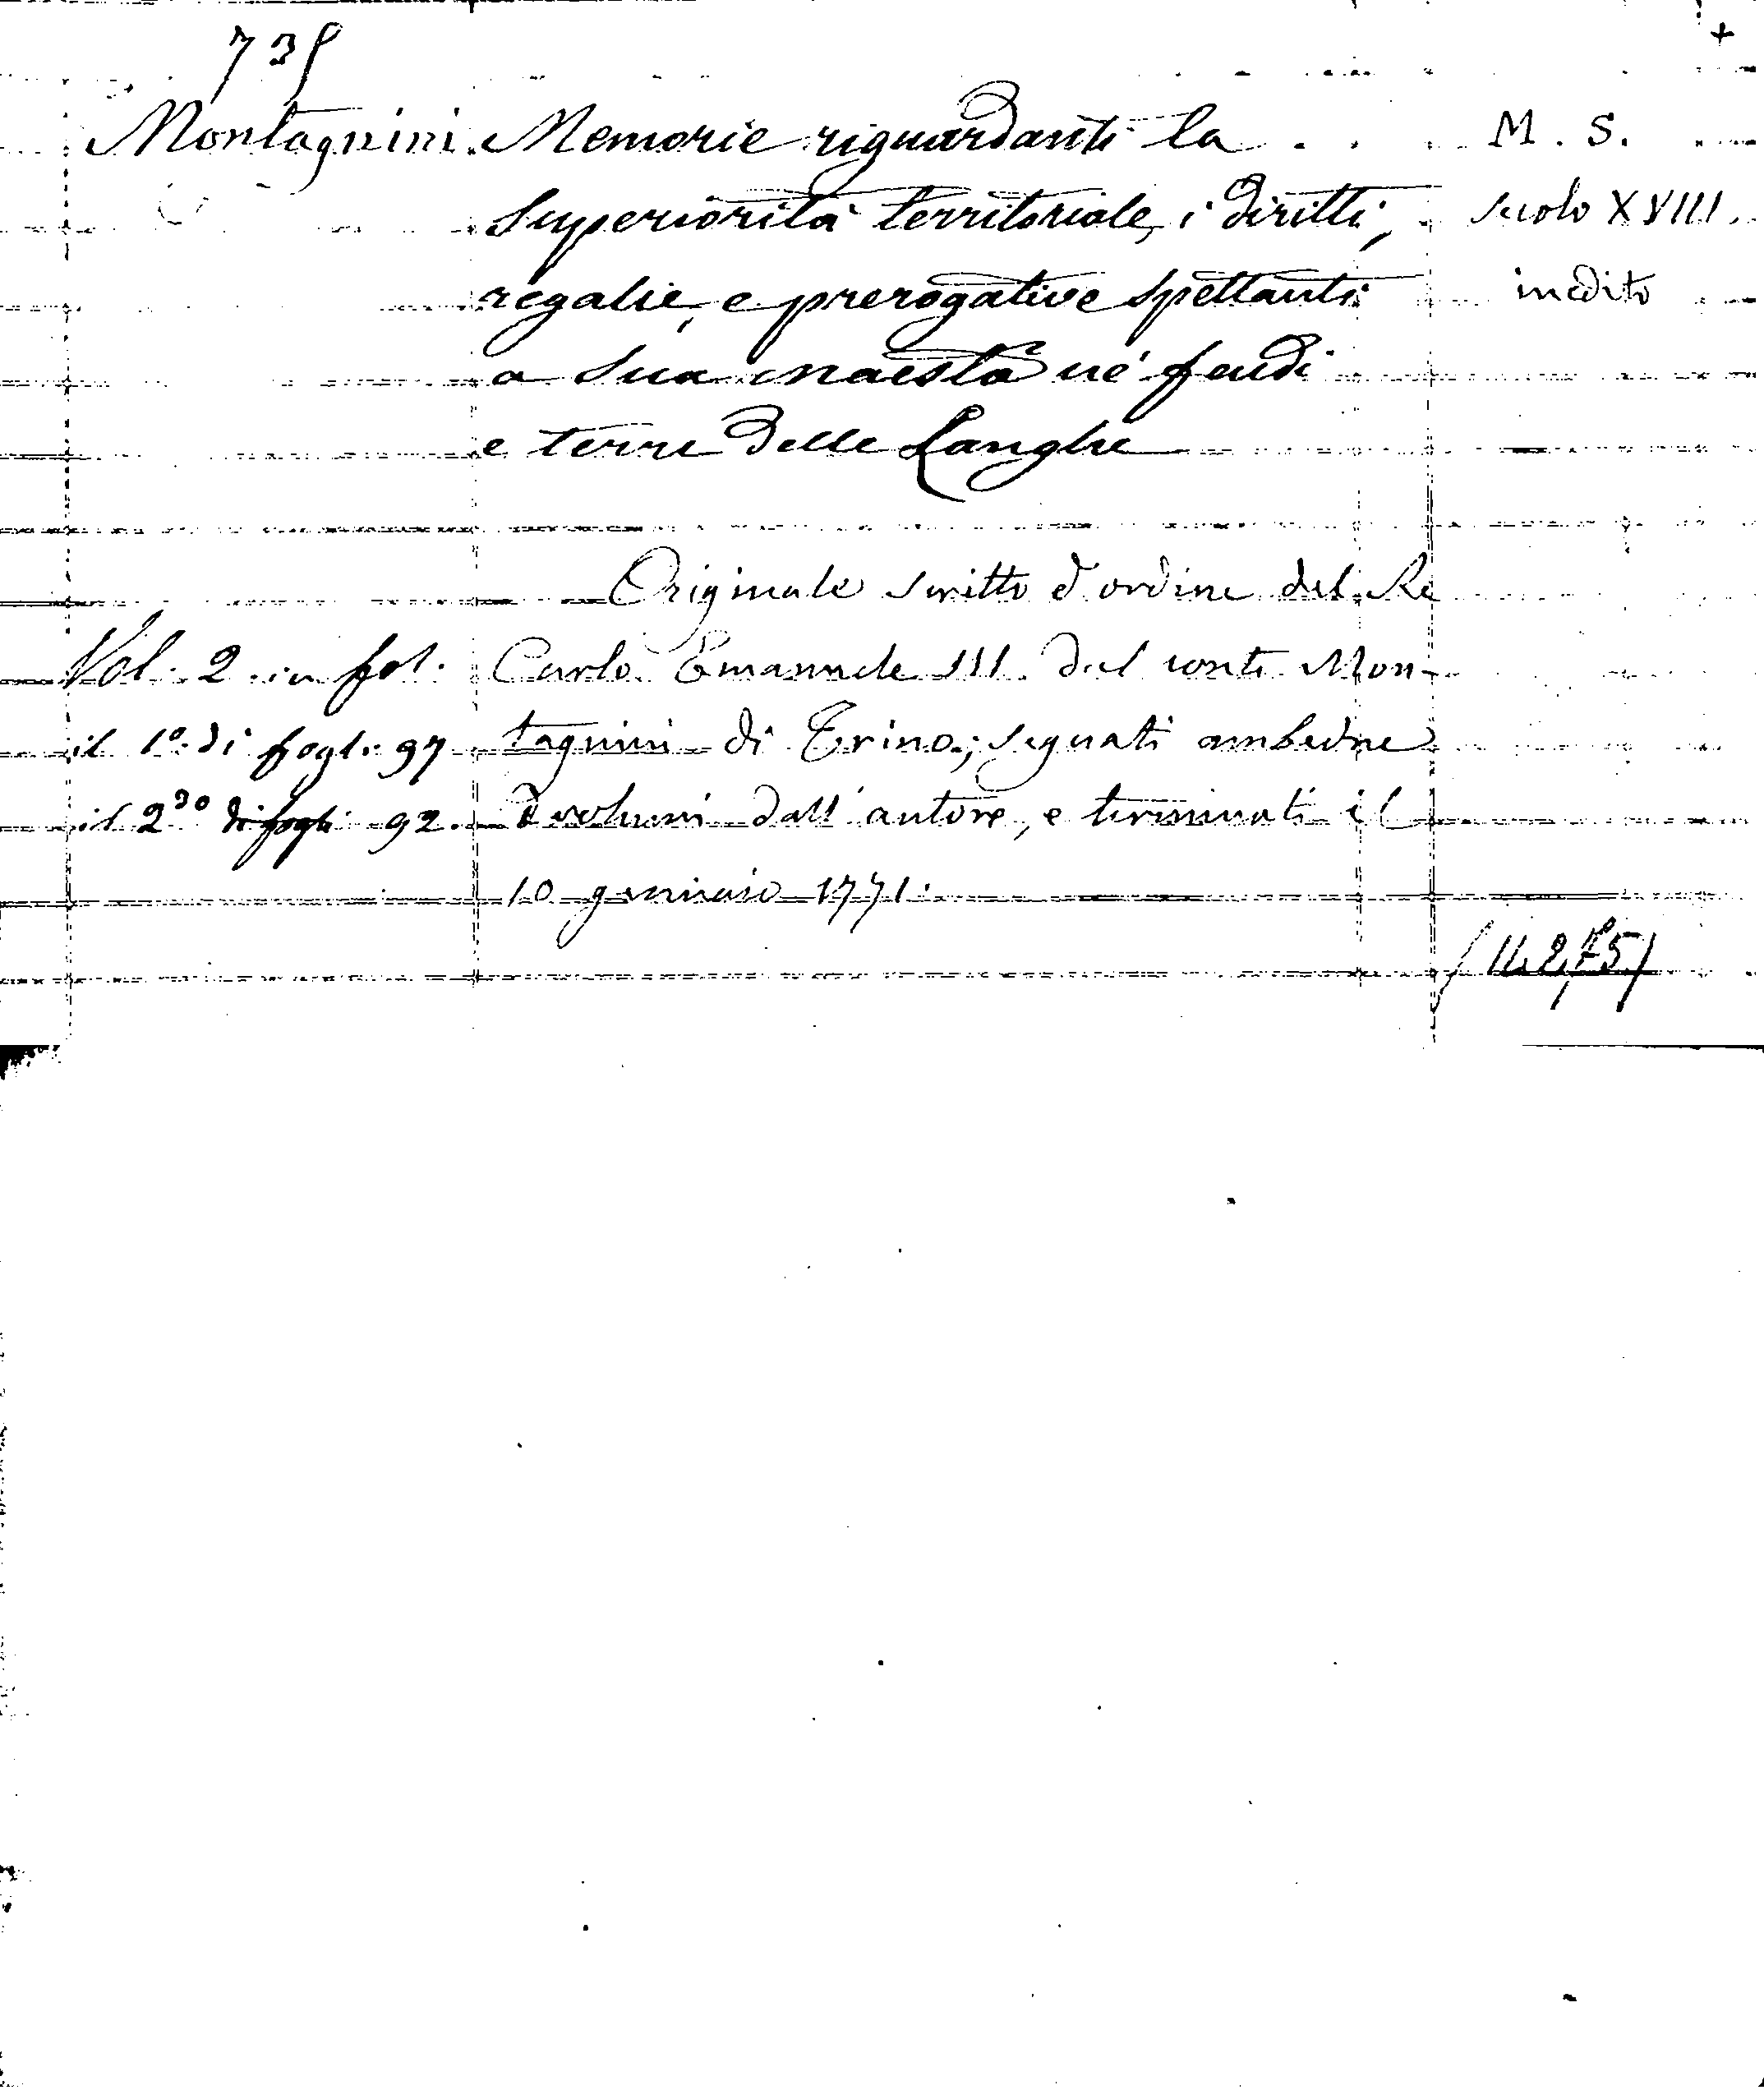 735
+
Montagnini. Memorie riguardanti la M. S.
Superiorità territoriale, i diritti, secolo XVIII.
regalie, e prerogative spettanti inedito
a sua maestà ne' feudi
e terre delle Langhe
Originale scritto d'ordine del Re
Vol. 2 in fol. Carlo Emanuele III dal conte Mon-
il 1º di fogl. 97 tagnini di Trino; segnati ambedue
il 2do di fogli 92. i volumi dall'autore, e terminati il
10 gennaio 1771.